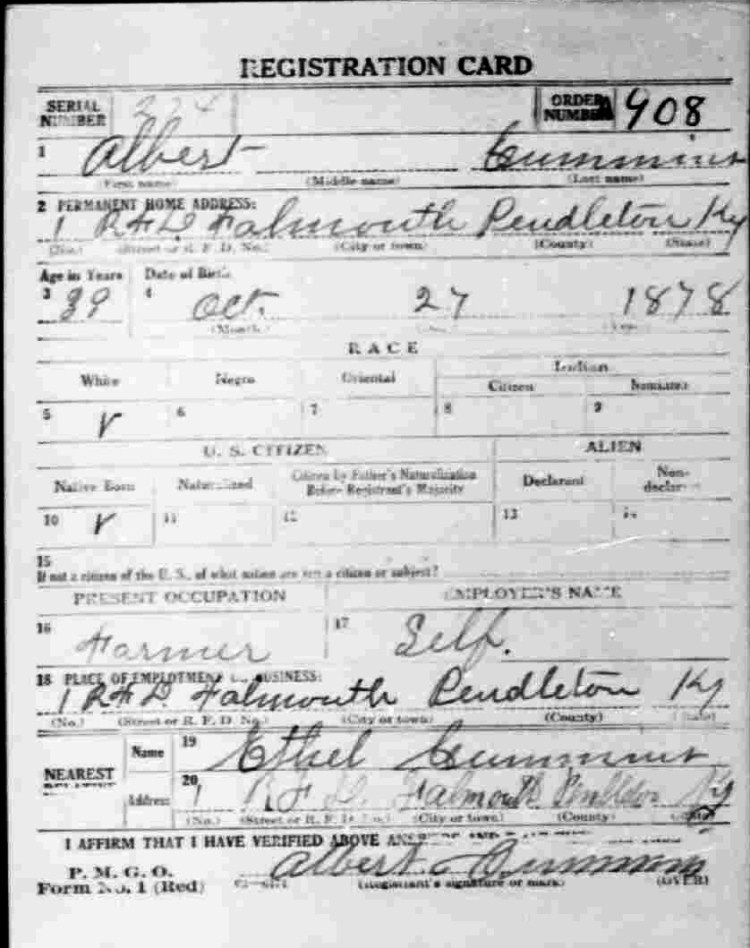 REGISTRATION CARD
SERIAL NUMBER 224 ORDER NUMBER A 908
1 Albert Cummins
(First name) (Middle name) (Last name)
2 PERMANENT HOME ADDRESS:
1 R F D Falmouth Pendleton Ky
(No.) (Street or R. F. D. No.) (City or town) (County) (State)
Age in Years Date of Birth
3 39 4 Oct. 27 1878
(Month.)
RACE
White Negro Oriental Indian
Citizen Noncitizen
5 V 6 7 8 9
U. S. CITIZEN ALIEN
Native Born Naturalized Citizen by Father's Naturalization Before Registrant's Majority Declarant Non-declarant
10 V 11 12 13 14
15
If not a citizen of the U. S., of what nation are you a citizen or subject?
PRESENT OCCUPATION EMPLOYER'S NAME
16 Farmer 17 Self.
18 PLACE OF EMPLOYMENT OR BUSINESS:
1 R F D. Falmouth Pendleton Ky
(No.) (Street or R. F. D. No.) (City or town) (County) (State)
NEAREST RELATIVE Name 19 Ethel Cummins
Address 20 1 R F D. Falmouth Pendleton Ky
(No.) (Street or R. F. D. No.) (City or town) (County) (State)
I AFFIRM THAT I HAVE VERIFIED ABOVE ANSWERS AND
P. M. G. O.
Form No. 1 (Red) Albert Cummins
(Registrant's signature or mark) (OVER)